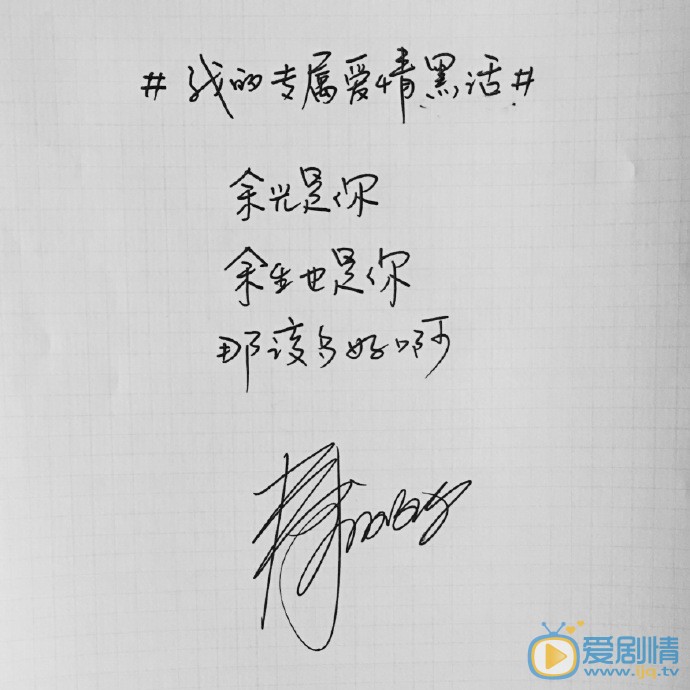 #我的专属爱情黑话#
余光是你
余生也是你
那该多好啊
爱剧情
www.ijq.tv